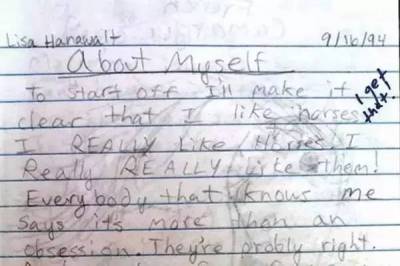 Lisa Hanawalt 9/16/94
About Myself
To start off I'll make it
clear that I like horses.
I get
that!
I REALLY Like Horses. I
Really REALLY like them!
Everybody that knows me
says its more then an
obsession. They're probly right.